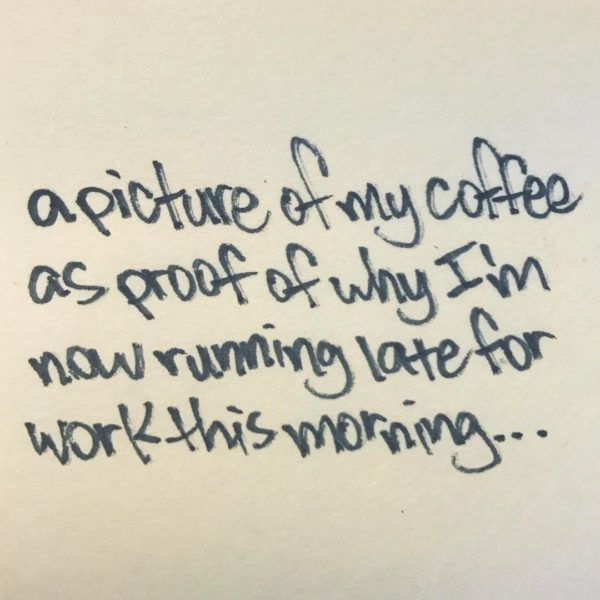 a picture of my coffee
as proof of why I'm
now running late for
work this morning...